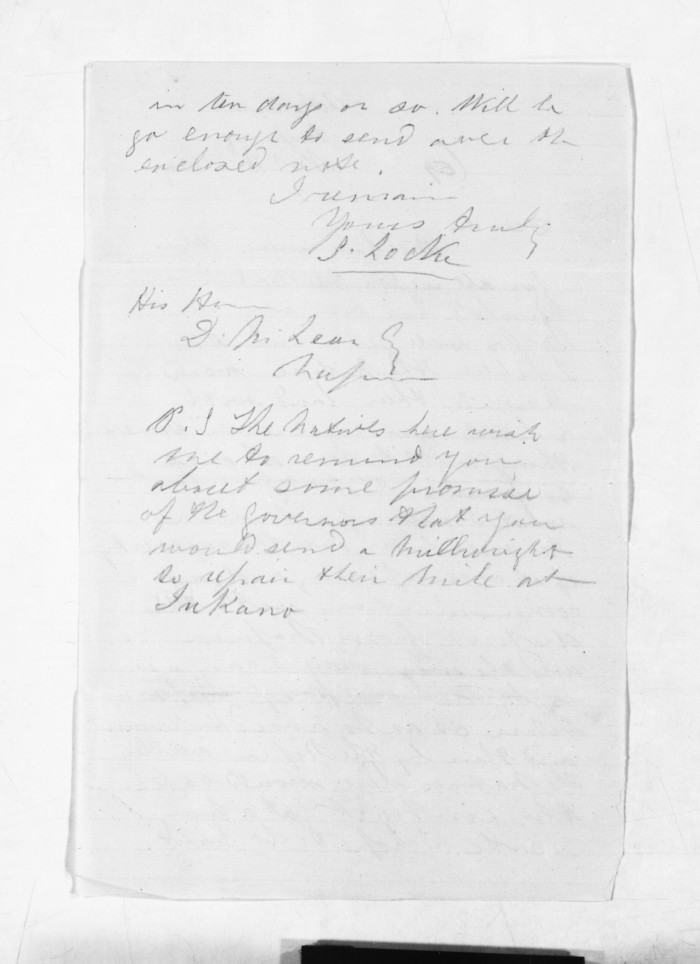 in ten days or so. Will be
go enough to send over the
enclosed note.
I remain
Yours truly
S. Locke
His Honor
D. McLean Esq
Napier
P.S The Natives here wish
me to remind you
about some promise
of the governors that you
would send a Millwright
to repair their Mill at